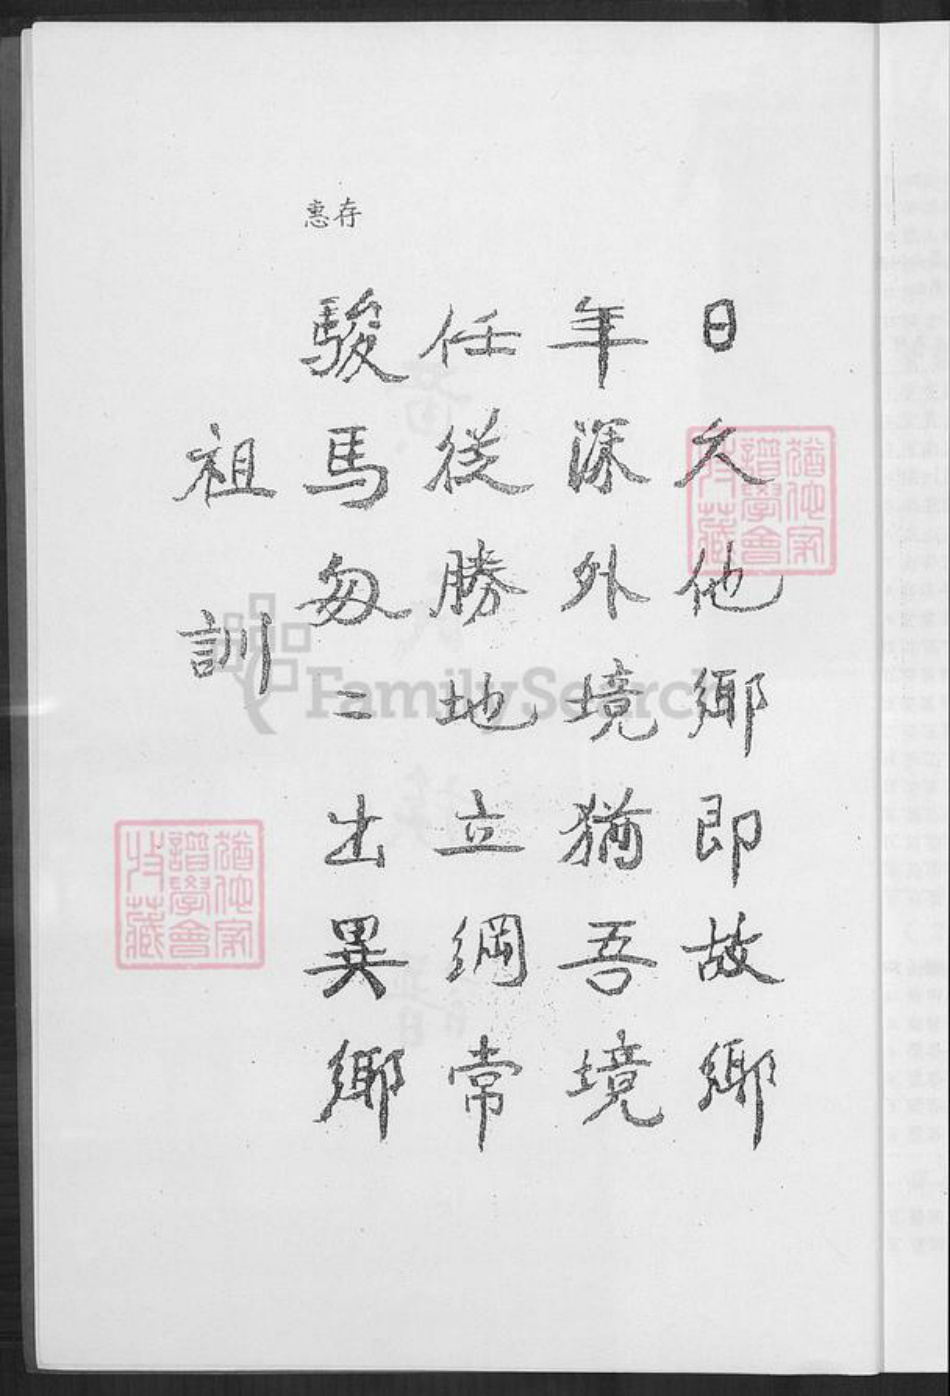 惠存
日久他鄉即故鄉
年深外境猶吾境
任從勝地立綱常
駿馬匆〻出異鄉
祖訓
譜學會
收藏
譜學會
收藏
FamilySearch